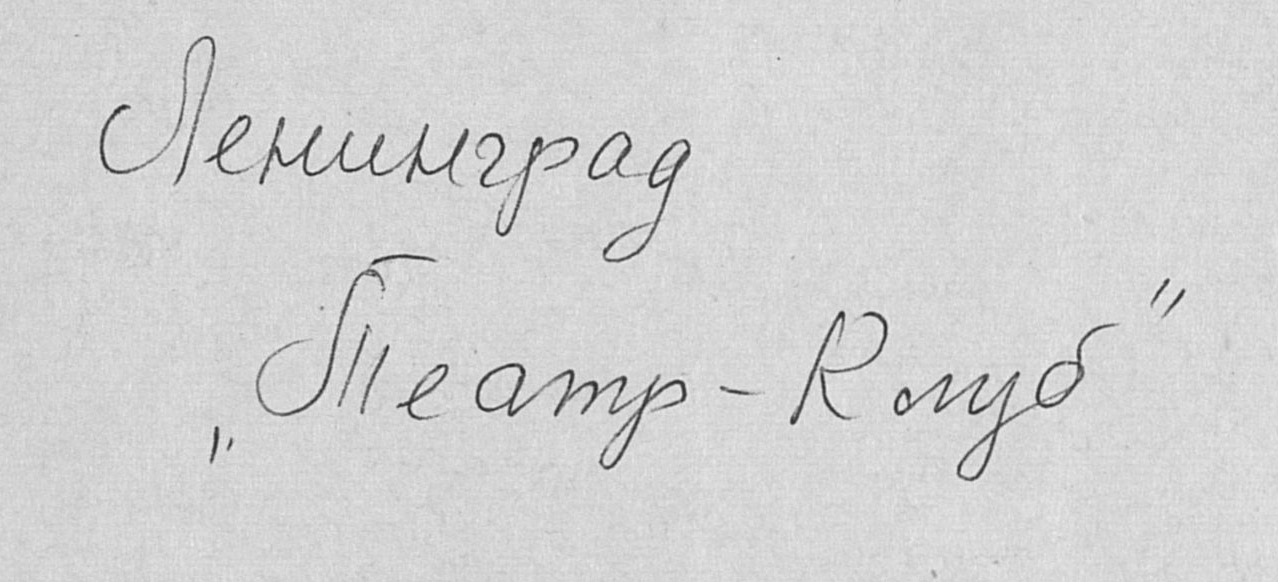 Ленинград
„Театр-Клуб"